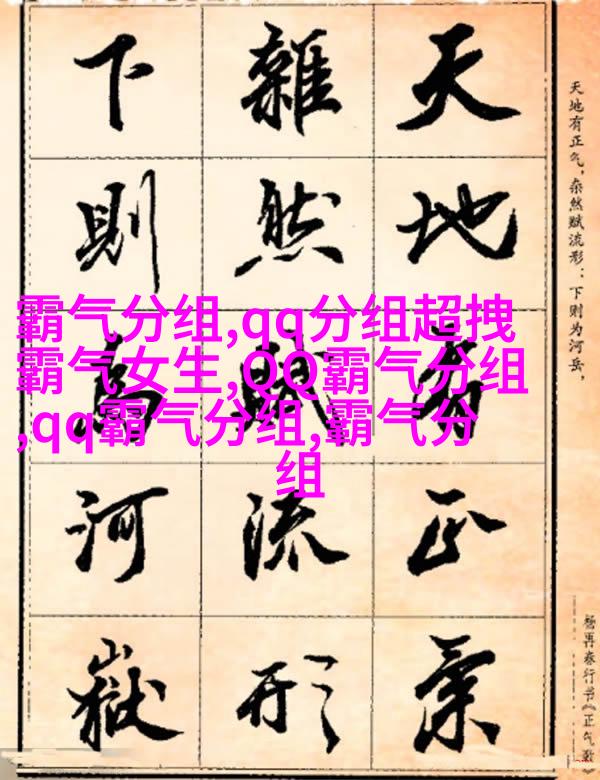 天地有正氣
雜然賦流形
下則為河嶽
天地有正气，杂然赋流形：下则为河岳，
杨再春行书《正气歌》
霸气分组,qq分组超拽
霸气女生,QQ霸气分组
,qq霸气分组,霸气分
组